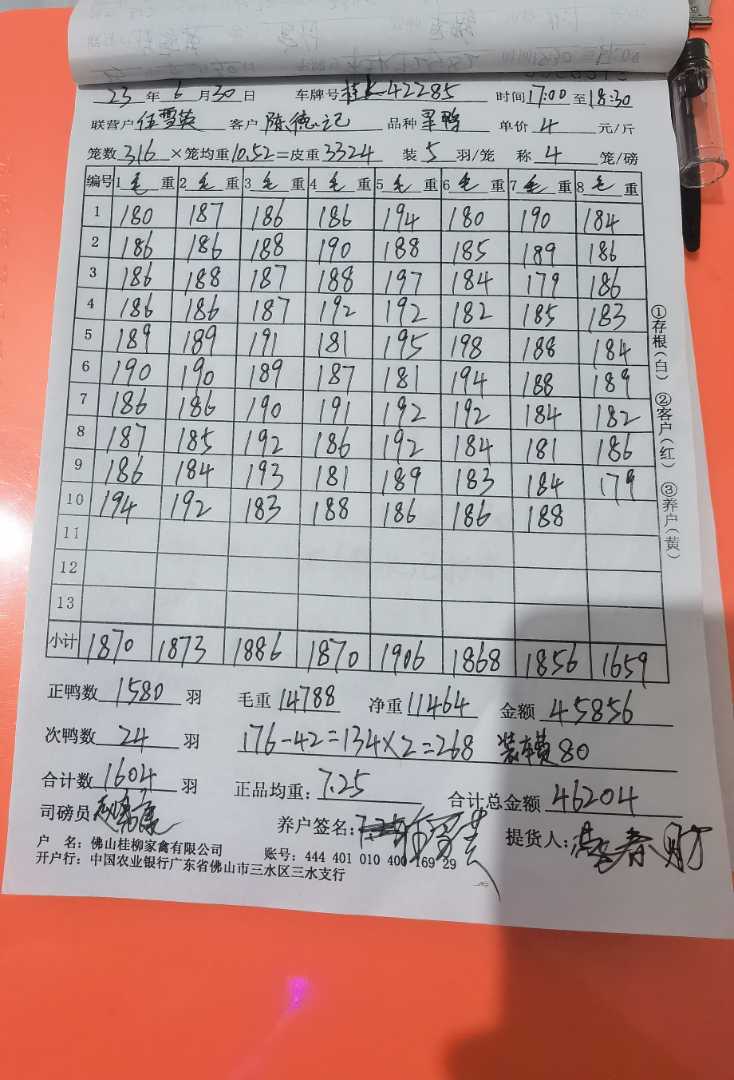 23 年 6 月 30 日 车牌号 42285 时间 17:00 至 18:30
联营户 伍雪英 客户 陈德记 品种 旱鸭 单价 4 元/斤
笼数 316 ×笼均重 10.52 =皮重 3324 装 5 羽/笼 称 4 笼/磅
编号 1 毛 重 2 毛 重 3 毛 重 4 毛 重 5 毛 重 6 毛 重 7 毛 重 8 毛 重
1 180 187 186 186 194 180 190 184
2 186 186 188 190 188 185 189 186
3 186 188 187 188 197 184 179 186
4 186 186 187 192 192 182 185 183
5 189 189 191 181 195 198 188 184
6 190 190 189 187 181 194 188 189
7 186 186 190 191 192 192 184 182
8 187 185 192 186 192 184 181 186
9 186 184 193 181 189 183 184 179
10 194 192 183 188 186 186 188
11
12
13
小计 1870 1873 1886 1870 1906 1868 1856 1659
正鸭数 1580 羽 毛重 14788 净重 11464 金额 45856
次鸭数 24 羽 176-42=134×2=268 装车费80
合计数 1604 羽 正品均重: 7.25 合计总金额 46204
司磅员 养户签名: 提货人:
户 名: 佛山桂柳家禽有限公司 账号: 444 401 010 400 169 29
开户行: 中国农业银行广东省佛山市三水区三水支行
①存根(白) ②客户(红) ③养户(黄)